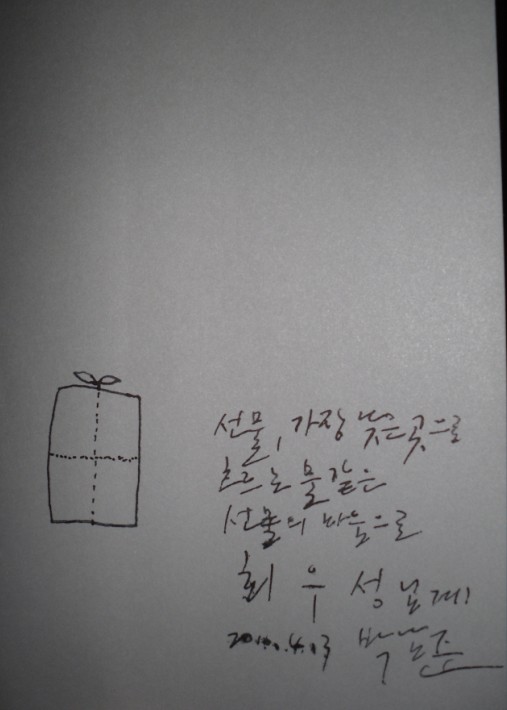 선물, 가장 낮은 곳으로
흐르는 물같은
선물의 마음으로
최 우 성 님께!
4.13 박남준